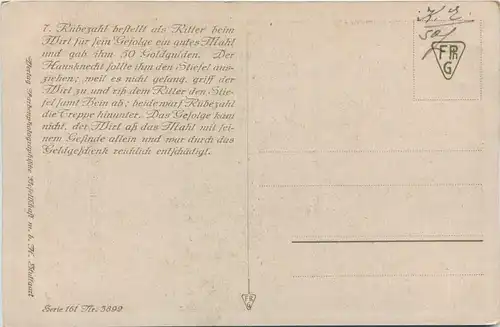 7. Rübezahl bestellt als Ritter beim
Wirt für sein Gefolge ein gutes Mahl
und gab ihm 50 Goldgulden. Der
Hausknecht sollte ihm den Stiefel aus-
ziehen; weil es nicht gelang, griff der
Wirt zu und riß dem Ritter den Stie-
fel samt Bein ab; beide warf Rübezahl
die Treppe hinunter. Das Gefolge kam
nicht, der Wirt aß das Mahl mit sei-
nem Gesinde allein und war durch das
Geldgeschenk reichlich entschädigt.
Serie 161 Nr. 3899
Verlag Farbenphotographische Gesellschaft m. b. H., Stuttgart
50
FPhG
FPhG